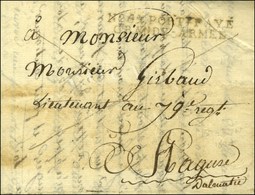 PORT PAYÉ
ARMÉE
à Monsieur
Monsieur Girbaud
Lieutenant au 79e regt
à Raguse
Dalmatie